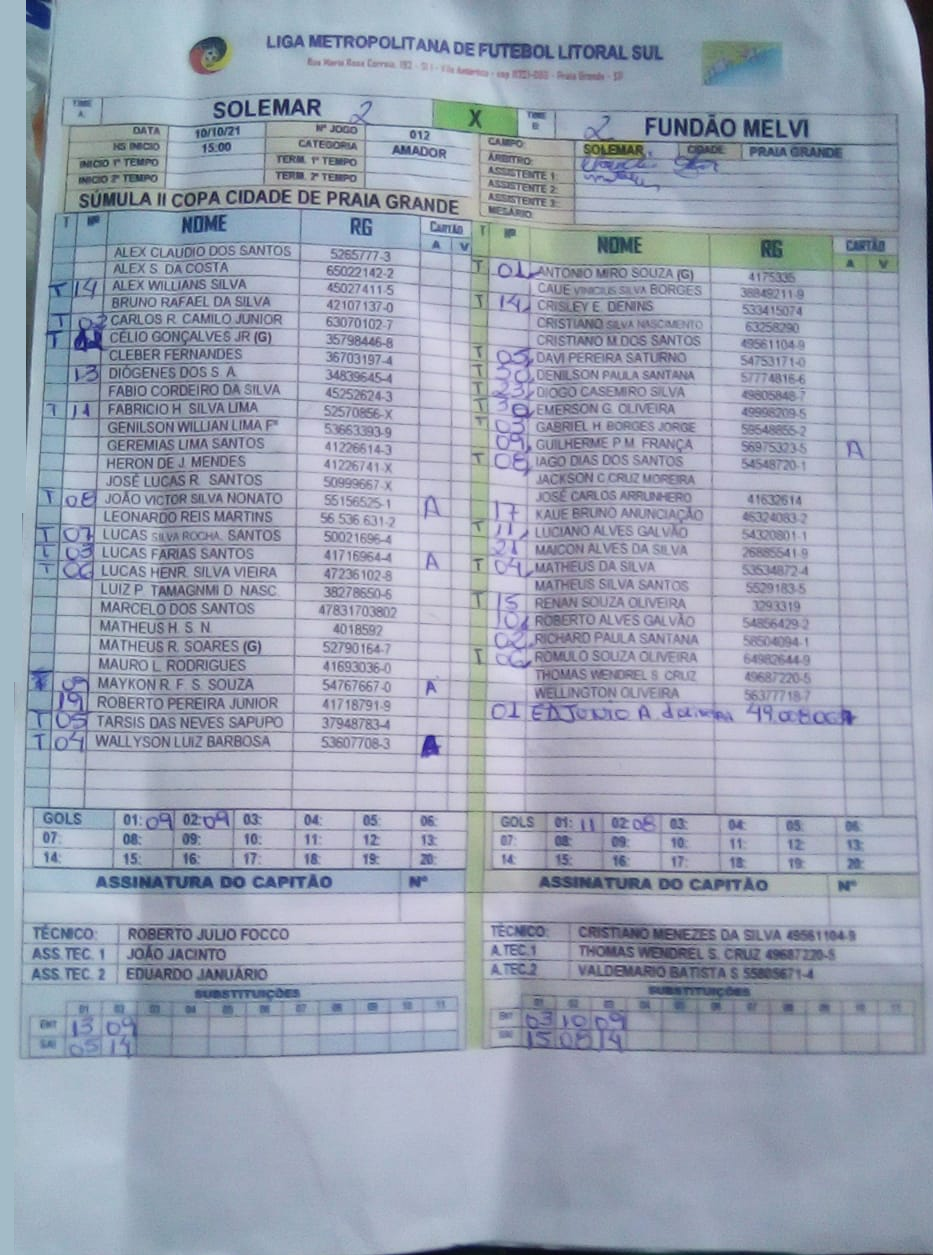 LIGA METROPOLITANA DE FUTEBOL LITORAL SUL
Rua Maria Rosa Correia, 192 - Sl 1 - Vila - cep - Praia Grande - SP
TIME A: SOLEMAR 2 X TIME B: 2 FUNDÃO MELVI
DATA 10/10/21 Nº JOGO 012
HS INICIO 15:00 CATEGORIA AMADOR
INICIO 1º TEMPO TERM. 1º TEMPO
INICIO 2º TEMPO TERM. 2º TEMPO
CAMPO: SOLEMAR CIDADE PRAIA GRANDE
ÁRBITRO:
ASSISTENTE 1:
ASSISTENTE 2:
ASSISTENTE 3:
MESÁRIO:
SÚMULA II COPA CIDADE DE PRAIA GRANDE
T Nº NOME RG CARTÃO
A V
ALEX CLAUDIO DOS SANTOS 5265777-3
ALEX S. DA COSTA 65022142-2
T 14 ALEX WILLIANS SILVA 45027411-5
BRUNO RAFAEL DA SILVA 42107137-0
T 02 CARLOS R. CAMILO JUNIOR 63070102-7
T CÉLIO GONÇALVES JR (G) 35798446-8
CLEBER FERNANDES 36703197-4
13 DIÓGENES DOS S. A. 34839645-4
FABIO CORDEIRO DA SILVA 45252624-3
T 11 FABRICIO H. SILVA LIMA 52570856-X
GENILSON WILLIAN LIMA Fº 53663393-9
GEREMIAS LIMA SANTOS 41226614-3
HERON DE J. MENDES 41226741-X
JOSÉ LUCAS R. SANTOS 50999667-X
T 08 JOÃO VICTOR SILVA NONATO 55156525-1 A
LEONARDO REIS MARTINS 56 536 631-2
T 07 LUCAS SILVA ROCHA. SANTOS 50021696-4
T 03 LUCAS FARIAS SANTOS 41716964-4 A
T 06 LUCAS HENR. SILVA VIEIRA 47236102-8
LUIZ P. TAMAGNMI D. NASC. 38278650-6
MARCELO DOS SANTOS 47831703802
MATHEUS H. S. N. 4018592
MATHEUS R. SOARES (G) 52790164-7
MAURO L. RODRIGUES 41693036-0
T 09 MAYKON R. F. S. SOUZA 54767667-0 A
19 ROBERTO PEREIRA JUNIOR 41718791-9
T 05 TARSIS DAS NEVES SAPUPO 37948783-4
T 04 WALLYSON LUIZ BARBOSA 53607708-3 A
GOLS 01: 09 02: 09 03: 04: 05: 06:
07: 08: 09: 10: 11: 12: 13:
14: 15: 16: 17: 18: 19: 20:
ASSINATURA DO CAPITÃO Nº
TÉCNICO: ROBERTO JULIO FOCCO
ASS. TEC. 1 JOÃO JACINTO
ASS. TEC. 2 EDUARDO JANUÁRIO
SUBSTITUIÇÕES
01 02 03 04 05 06 07 08 09 10 11
ENT 13 09
SAI 05 14
T Nº NOME RG CARTÃO
A V
T 01 ANTONIO MIRO SOUZA (G) 4175335
CAUE VINICIUS SILVA BORGES 38849211-9
T 14 CRISLEY E. DENINS 533415074
CRISTIANO SILVA NASCIMENTO 63258290
CRISTIANO M.DOS SANTOS 49561104-9
T 05 DAVI PEREIRA SATURNO 54753171-0
T DENILSON PAULA SANTANA 57774816-6
T 23 DIOGO CASEMIRO SILVA 49805848-7
T 30 EMERSON G. OLIVEIRA 49998209-5
T 03 GABRIEL H. BORGES JORGE 59548855-2
09 GUILHERME P.M. FRANÇA 56975323-5 A
T 08 IAGO DIAS DOS SANTOS 54548720-1
JACKSON C CRUZ MOREIRA
JOSÉ CARLOS ARRUNHERO 41632614
17 KAUE BRUNO ANUNCIAÇÃO 46324083-2
T 11 LUCIANO ALVES GALVÃO 54320801-1
21 MAICON ALVES DA SILVA 26885541-9
T 04 MATHEUS DA SILVA 53534872-4
MATHEUS SILVA SANTOS 5529183-5
T 15 RENAN SOUZA OLIVEIRA 3293319
10 ROBERTO ALVES GALVÃO 54856429-2
02 RICHARD PAULA SANTANA 58504094-1
T 06 ROMULO SOUZA OLIVEIRA 64982644-9
THOMAS WENDREL S. CRUZ 49687220-5
WELLINGTON OLIVEIRA 56377718-7
01 EDJUNIO A. d oliveira
GOLS 01: 11 02: 08 03: 04: 05: 06:
07: 08: 09: 10: 11: 12: 13:
14: 15: 16: 17: 18: 19: 20:
ASSINATURA DO CAPITÃO Nº
TÉCNICO: CRISTIANO MENEZES DA SILVA 49561104-9
A.TEC.1 THOMAS WENDREL S. CRUZ 49687220-5
A.TEC.2 VALDEMARIO BATISTA S 55805671-4
SUBSTITUIÇÕES
01 02 03 04 05 06 07 08 09 10 11
ENT 03 10 09
SAI 15 08 14